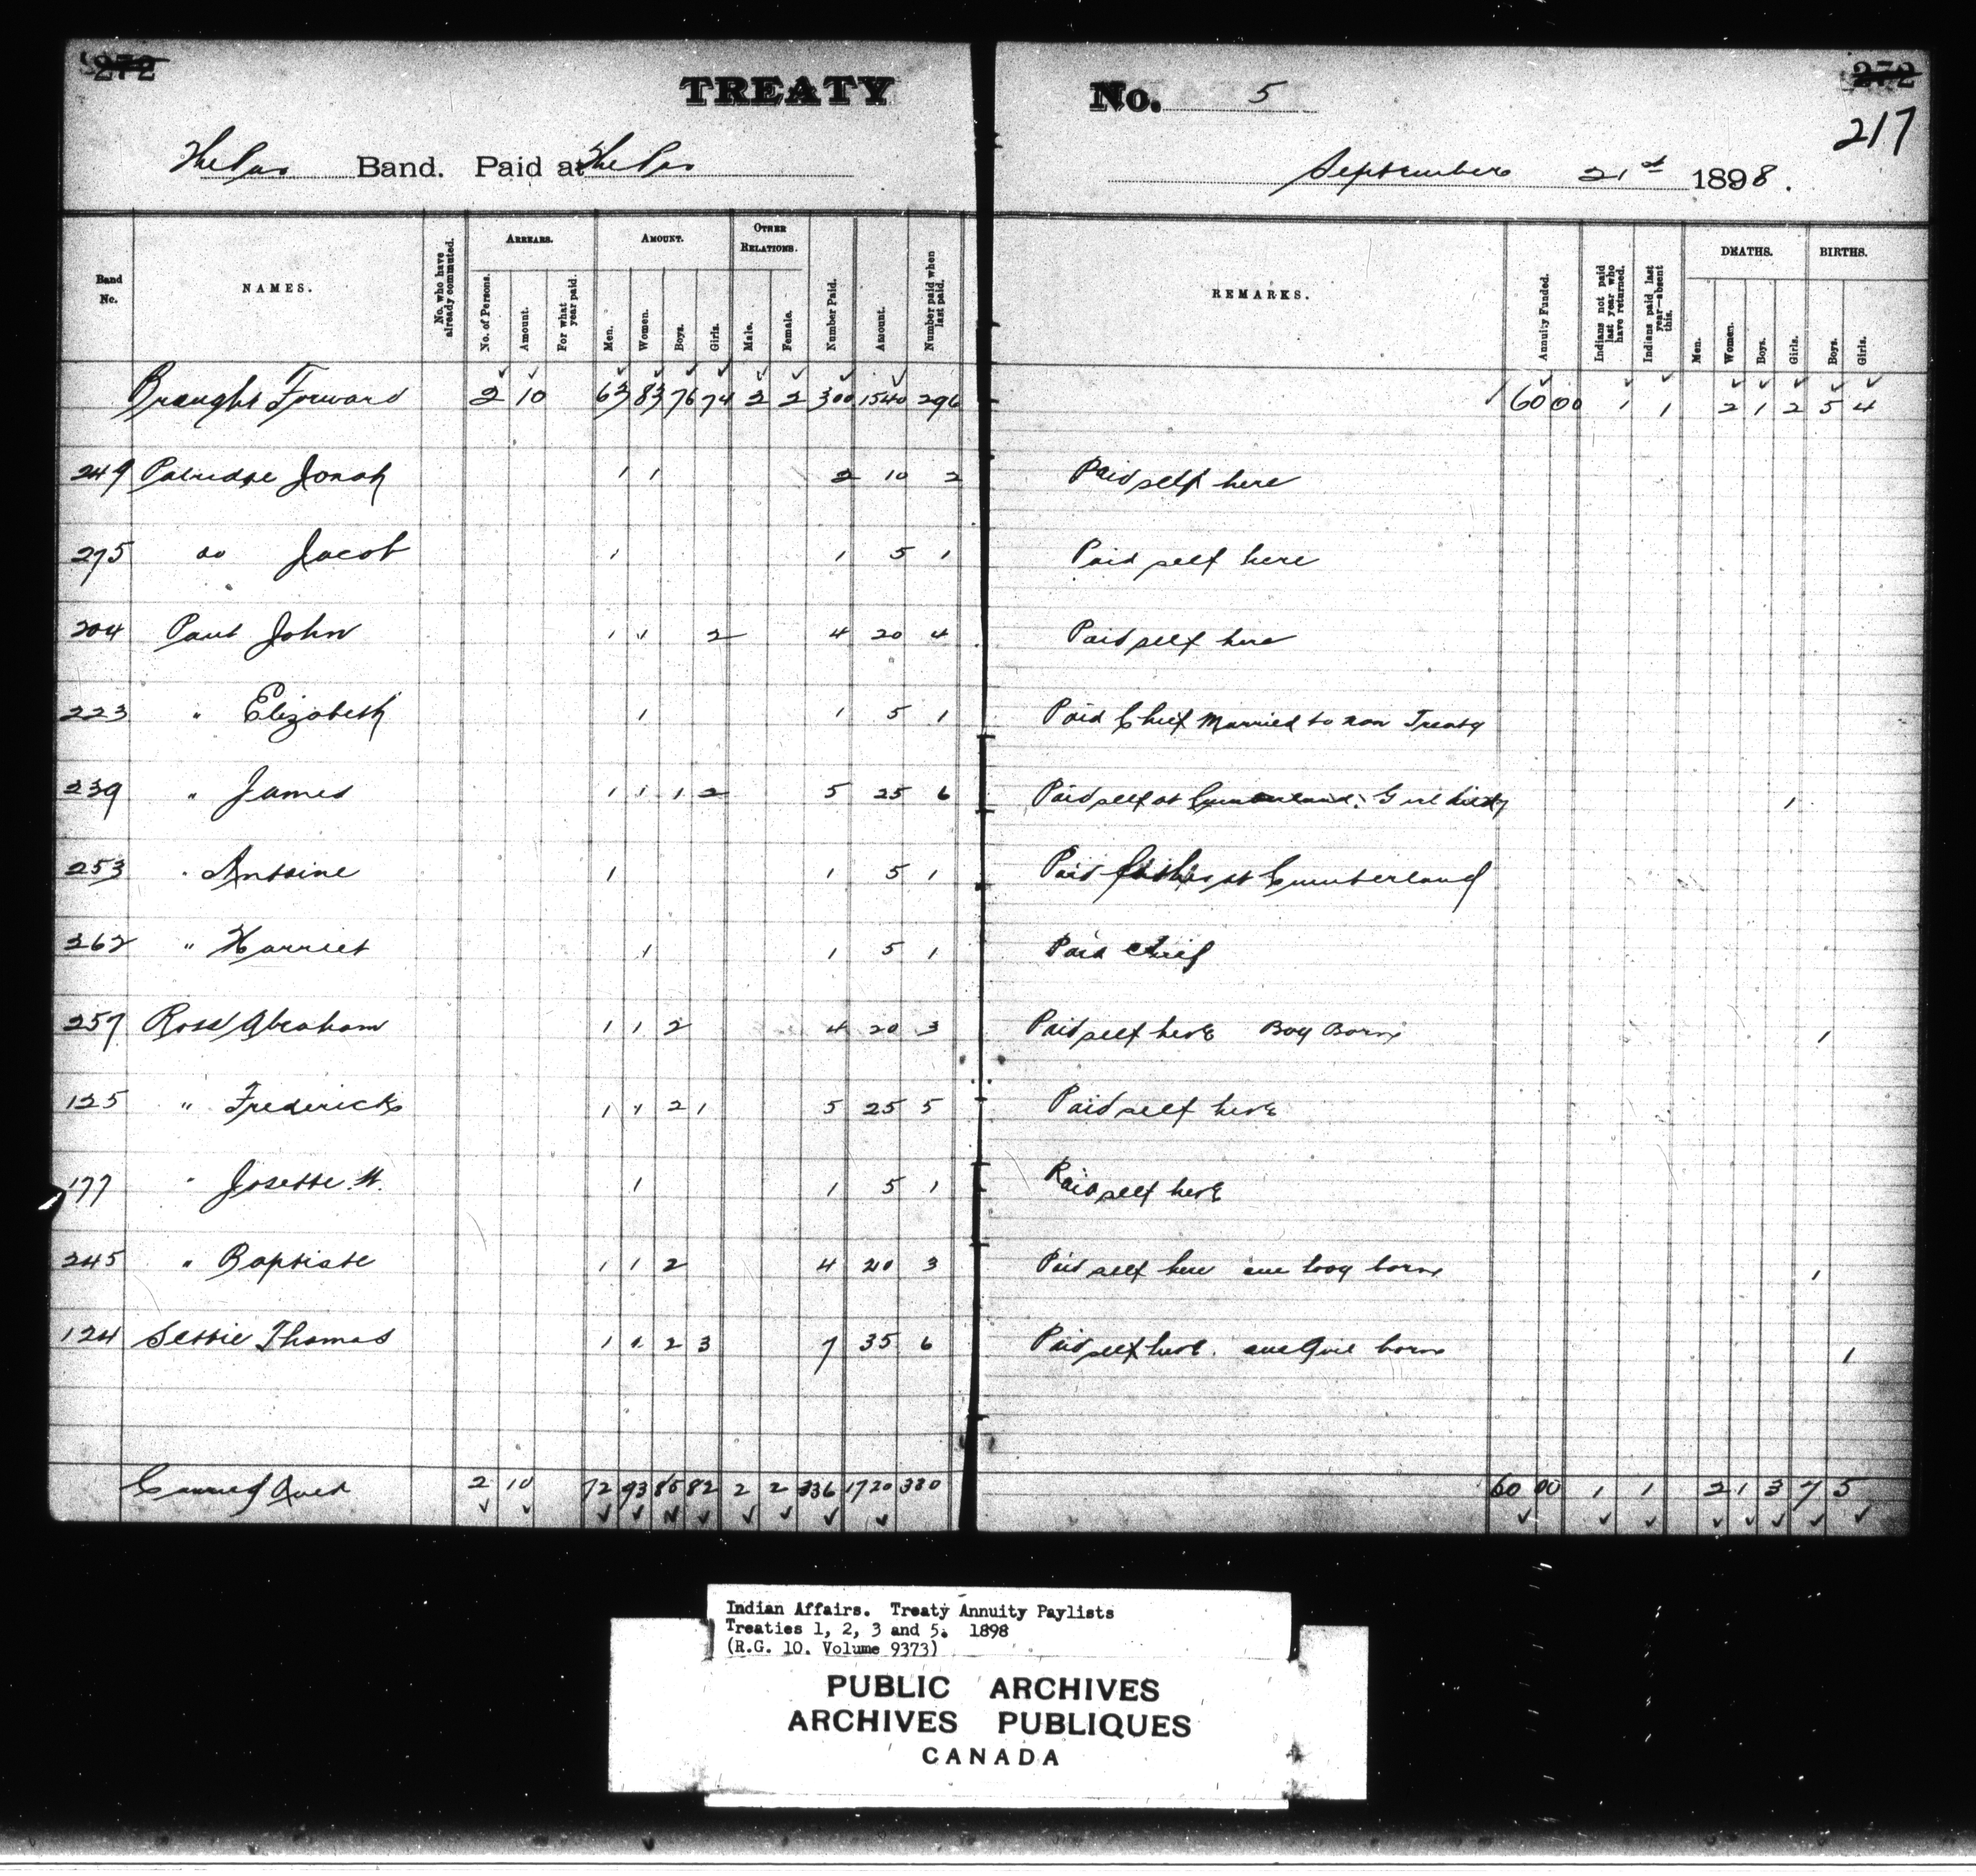 272 272
TREATY No. 5
217
The Pas Band. Paid at The Pas September 21st 1898.
Band No. NAMES. No. who have already commuted. ARREARS. No. of Persons. Amount. For what year paid. AMOUNT. Men. Women. Boys. Girls. OTHER RELATIONS. Male. Female. Number Paid. Amount. Number paid when last paid. REMARKS. Annuity Funded. Indians not paid last year who have returned. Indians paid last year—absent this. DEATHS. Men. Women. Boys. Girls. BIRTHS. Boys. Girls.
Brought Forward 2 10 63 83 76 74 2 2 300 1540 296 60 00 1 1 2 1 2 5 4
249 Patridge Jonah 1 1 2 10 2 Paid self here
275 do Jacob 1 1 5 1 Paid self here
204 Paul John 1 1 2 4 20 4 Paid self here
223 " Elizabeth 1 1 5 1 Paid Chief Married to non Treaty
239 " James 1 1 1 2 5 25 6 Paid self at Cumberland. Girl died 1
253 " Antoine 1 1 5 1 Paid father at Cumberland
262 " Harriet 1 1 5 1 Paid Chief
257 Ross Abraham 1 1 2 4 20 3 Paid self here Boy Born 1
125 " Frederick 1 1 2 1 5 25 5 Paid self here
177 " Josette W. 1 1 5 1 Paid self here
245 " Baptiste 1 1 2 4 20 3 Paid self here one boy born 1
124 Settie Thomas 1 1 2 3 7 35 6 Paid self here. one Girl born 1
Carried Over 2 10 72 93 85 82 2 2 336 1720 330 60 00 1 1 2 1 3 7 5
Indian Affairs. Treaty Annuity Paylists
Treaties 1, 2, 3 and 5. 1898
(R.G. 10. Volume 9373)
PUBLIC ARCHIVES
ARCHIVES PUBLIQUES
CANADA